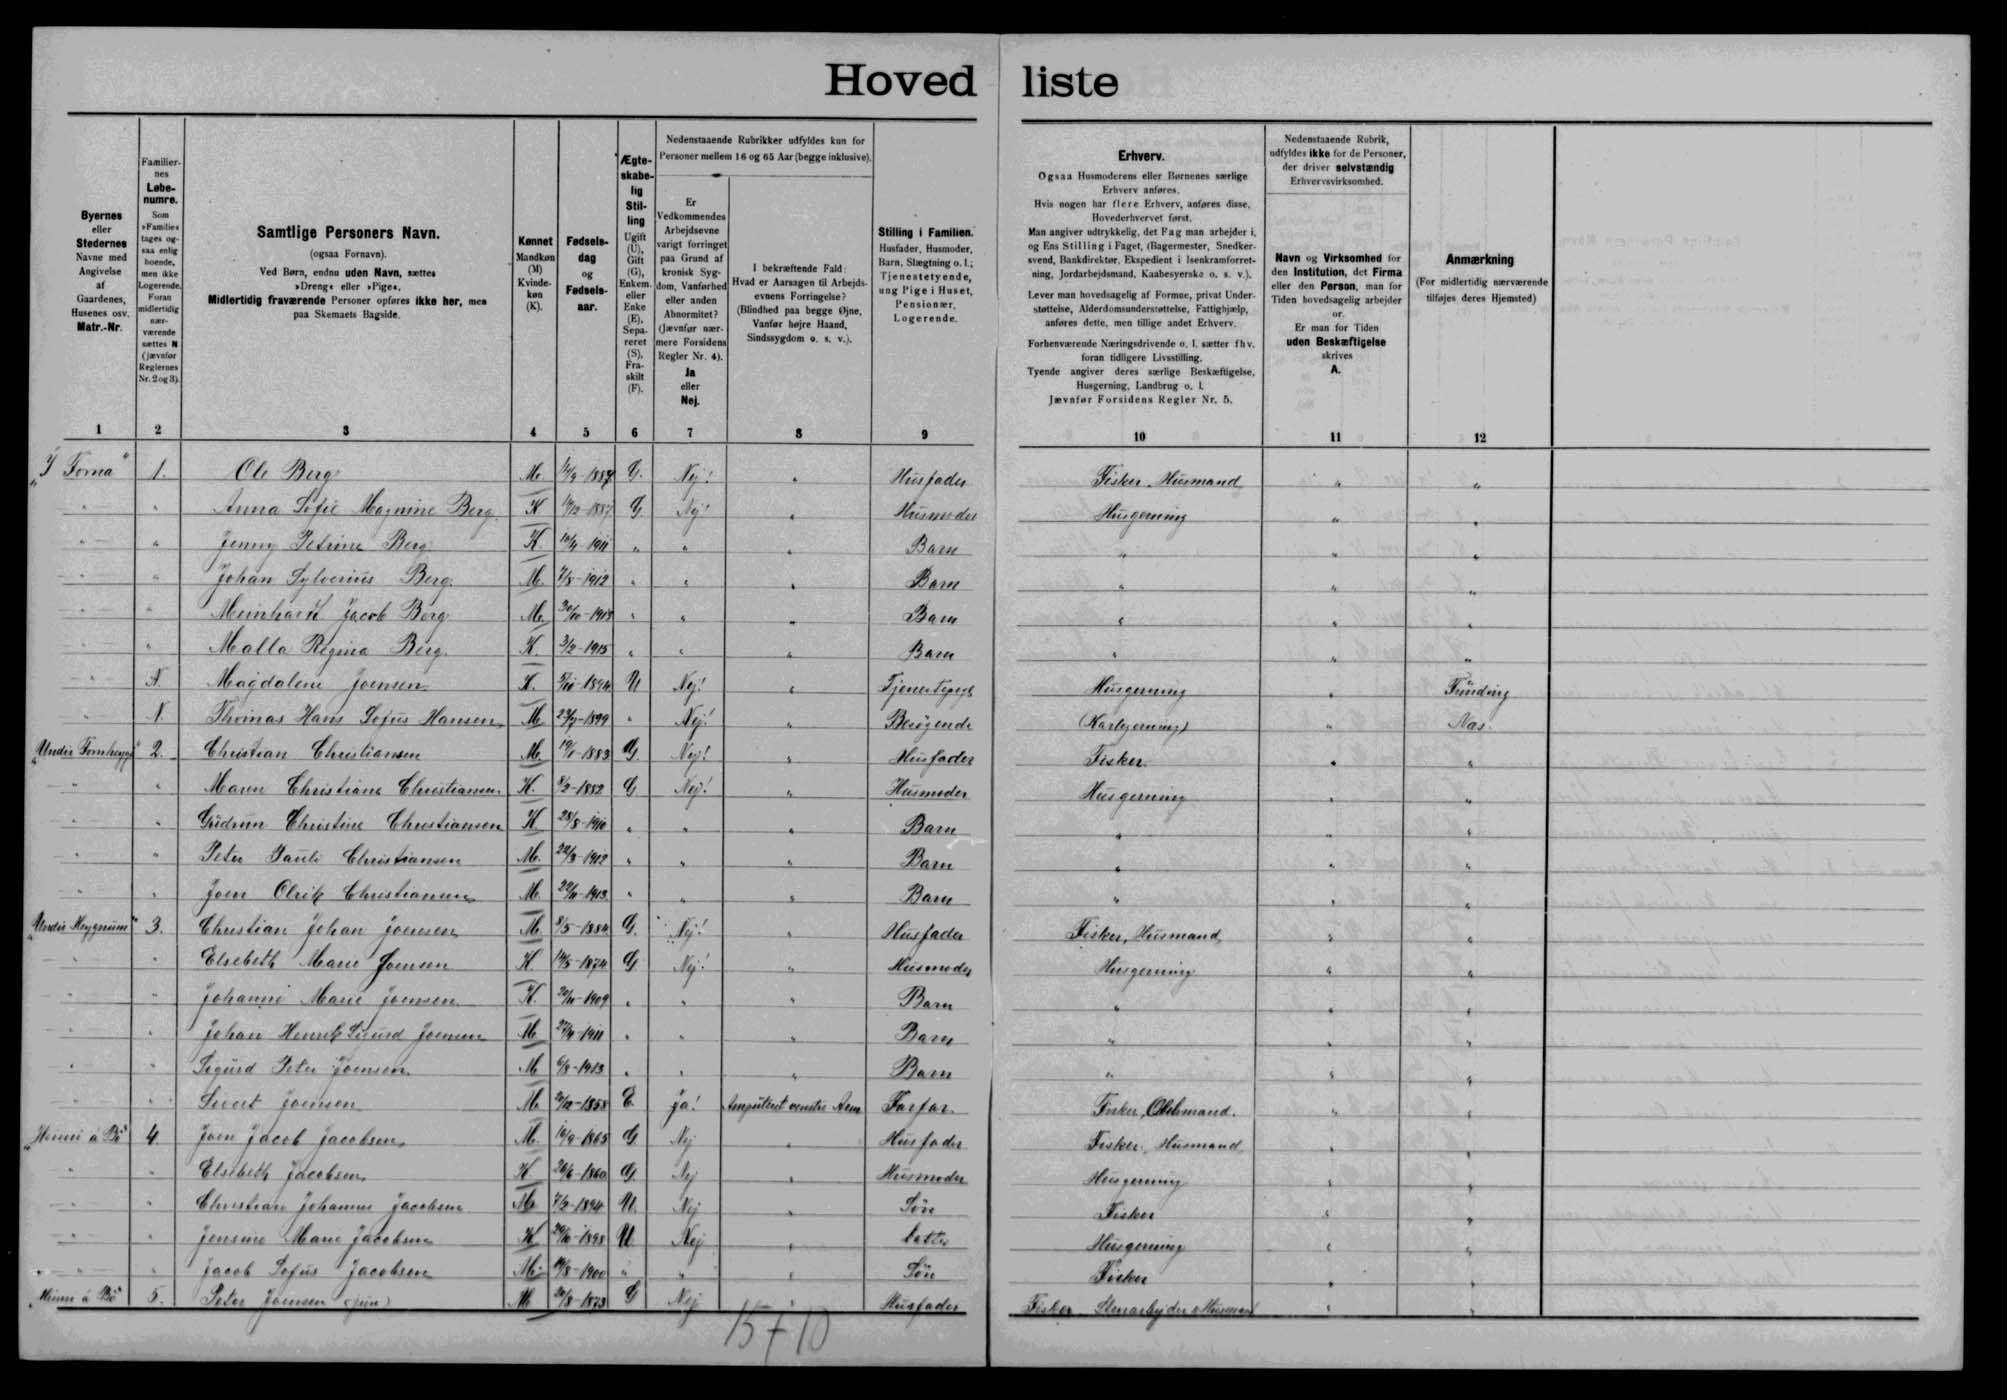 Hoved liste
Byernes eller Stedernes Navne med Angivelse af Gaardenes, Husenes osv. Matr.-Nr.
Familiernes Løbenumre. Som »Familie« tages ogsaa enlig boende, men ikke Logerende. Foran midlertidig nærværende sættes N (jævnfør Reglernes Nr. 2 og 3).
Samtlige Personers Navn.
(ogsaa Fornavn).
Ved Børn, endnu uden Navn, sættes
»Dreng« eller »Pige«.
Midlertidig fraværende Personer opføres ikke her, men
paa Skemaets Bagside.
Kønnet Mandkøn (M) Kvindekøn (K).
Fødselsdag og Fødselsaar.
Ægteskabelig Stilling Ugift (U), Gift (G), Enkem. eller Enke (E), Separeret (S), Fraskilt (F).
Nedenstaaende Rubrikker udfyldes kun for
Personer mellem 16 og 65 Aar (begge inklusive).
Er Vedkommendes Arbejdsevne varigt forringet paa Grund af kronisk Sygdom, Vanførhed eller anden Abnormitet? (Jævnfør nærmere Forsidens Regler Nr. 4). Ja eller Nej.
I bekræftende Fald: Hvad er Aarsagen til Arbejdsevnens Forringelse? (Blindhed paa begge Øjne, Vanfør højre Haand, Sindssygdom o. s. v.).
Stilling i Familien. Husfader, Husmoder, Barn, Slægtning o. l.; Tjenestetyende, ung Pige i Huset, Pensionær, Logerende.
Erhverv.
Ogsaa Husmoderens eller Børnenes særlige
Erhverv anføres.
Hvis nogen har flere Erhverv, anføres disse,
Hovederhvervet først.
Man angiver udtrykkelig, det Fag man arbejder i,
og Ens Stilling i Faget, (Bagermester, Snedker-
svend, Bankdirektør, Ekspedient i Isenkramforret-
ning, Jordarbejdsmand, Kaabesyerske o. s. v.).
Lever man hovedsagelig af Formue, privat Under-
støttelse, Alderdomsunderstøttelse, Fattighjælp,
anføres dette, men tillige andet Erhverv.
Forhenværende Næringsdrivende o. l. sætter fhv.
foran tidligere Livsstilling.
Tyende angiver deres særlige Beskæftigelse,
Husgerning, Landbrug o. l.
Jævnfør Forsidens Regler Nr. 5.
Nedenstaaende Rubrik,
udfyldes ikke for de Personer,
der driver selvstændig
Erhvervsvirksomhed.
Navn og Virksomhed for
den Institution, det Firma
eller den Person, man for
Tiden hovedsagelig arbejder
for.
Er man for Tiden
uden Beskæftigelse
skrives
A.
Anmærkning
(For midlertidig nærværende
tilføjes deres Hjemsted)
1 2 3 4 5 6 7 8 9 10 11 12
"I Forna" 1. Ole Berg M. G. Nej! " Husfader Fisker, Husmand " "
" " Anna Sofie Magnine Berg K 1887 G. Nej! " Husmoder Husgerning " "
" " Jenny Petrine Berg K. 1911 " " " Barn " " "
" " Johan Sylverius Berg. M. 7/8-1912 " " " Barn " " "
" " Meinhardt Jacob Berg M. 30/10-1913 " " " Barn " " "
" " Malla Regina Berg. K. 3/2-1915 " " " Barn " " "
" N. Magdalene Joensen K. 1894 U Nej! " Husgerning " Funding
" N. Thomas Hans Sofus Hansen M. 1899 " Nej! " Besøgende (Karlgerning) " Aas.
2. Christian Christiansen M. 1883 G. Nej! " Husfader Fisker. " "
" " Maren Christiane Christiansen K. 8/2-1882 G Nej! " Husmoder Husgerning " "
" " Gudrun Christine Christiansen K. 28/8-1910 " " " Barn " " "
" " Peter Pauli Christiansen M. 1912 " " " Barn " " "
" " Joen Olrik Christiansen M. 1913 " " " Barn " " "
"Undir Heygnum" 3. Christian Johan Joensen M. 8/5-1884 G. Nej! " Husfader Fisker, Husmand " "
" " Elsebeth Marie Joensen K. 1874 G. Nej! " Husmoder Husgerning " "
" " Johanne Marie Joensen K. 1909 " " " Barn " " "
" " Johan Henrik Sigurd Joensen M. 1911 " " " Barn " " "
" " Sigurd Peter Joensen M. 6/8-1913 " " " Barn " " "
" " Sivert Joensen M. 1858 E. Ja! Amputeret venstre Arm Farfar. Fisker, Odelsmand. " "
"Heimi á Bö" 4. Joen Jacob Jacobsen M. 1865 G Nej " Husfader Fisker, Husmand " "
" " Elsebeth Jacobsen K 26/6-1860 G. Nej " Husmoder Husgerning " "
" " Christian Johannes Jacobsen M. 7/2-1894 U. Nej " Søn Fisker " "
" " Jensine Marie Jacobsen K 1898 U. Nej " Datter Husgerning " "
" " Jacob Sofus Jacobsen M. 1900 " " " Søn Fisker " "
"Heimi á Bö" 5. Peter Joensen (jun) M 1873 G Nej " Husfader Fisker Stenarbejder Husmand " "
15+10